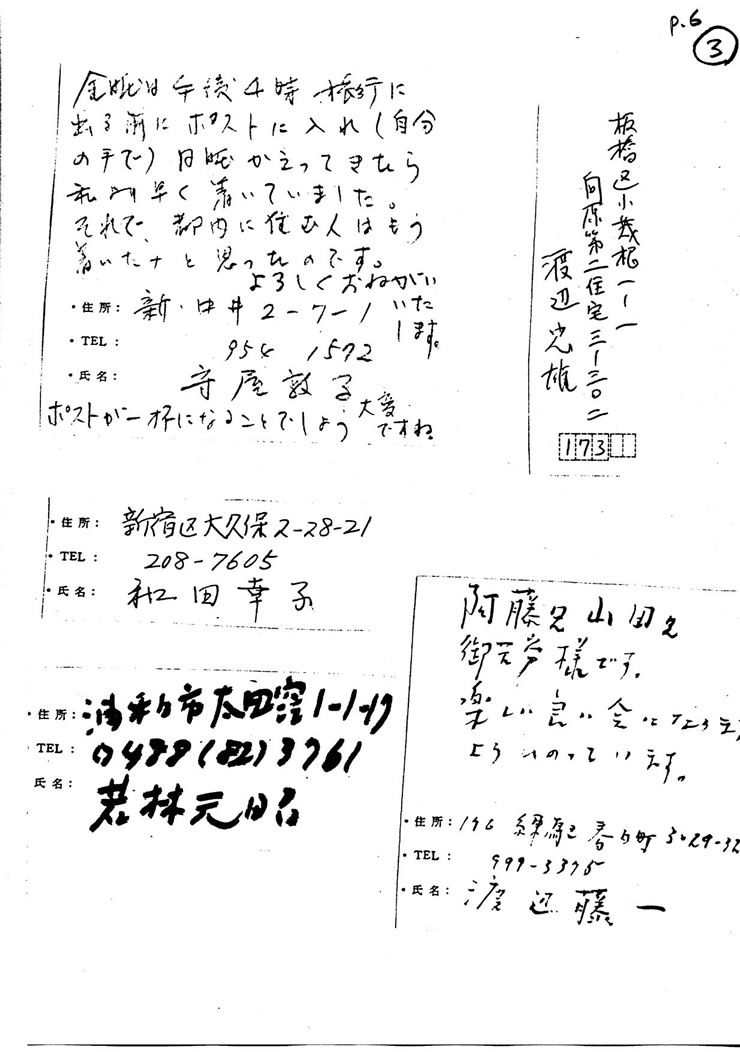 p.6
3
金曜日午後4時 旅行に
出る前にポストに入れ(自分
の手で)日曜かえってきたら
私より早く着いていました。
それで、都内に住む人はもう
着いたナと思ったのです。
よろしくおねがい
いた
します。
・住所: 新・中井2-7-1
・TEL: 954 1572
・氏名: 守屋敦子
ポストが一杯になることでしょう 大変
ですね。
板橋区小茂根一-一
向原第二住宅三-三〇二
渡辺忠雄
173
・住所: 新宿区大久保2-28-21
・TEL: 208-7605
・氏名: 和田幸子
・住所: 浦和市太田窪1-1-17
TEL: 0488(82)3761
氏名: 若林元昭
阿藤兄山田兄
御苦労様です。
楽しい良い会になりますよ
ういのっています。
・住所: 176 練馬区春日町3-29-32
・TEL: 999-3375
・氏名: 渡辺藤一